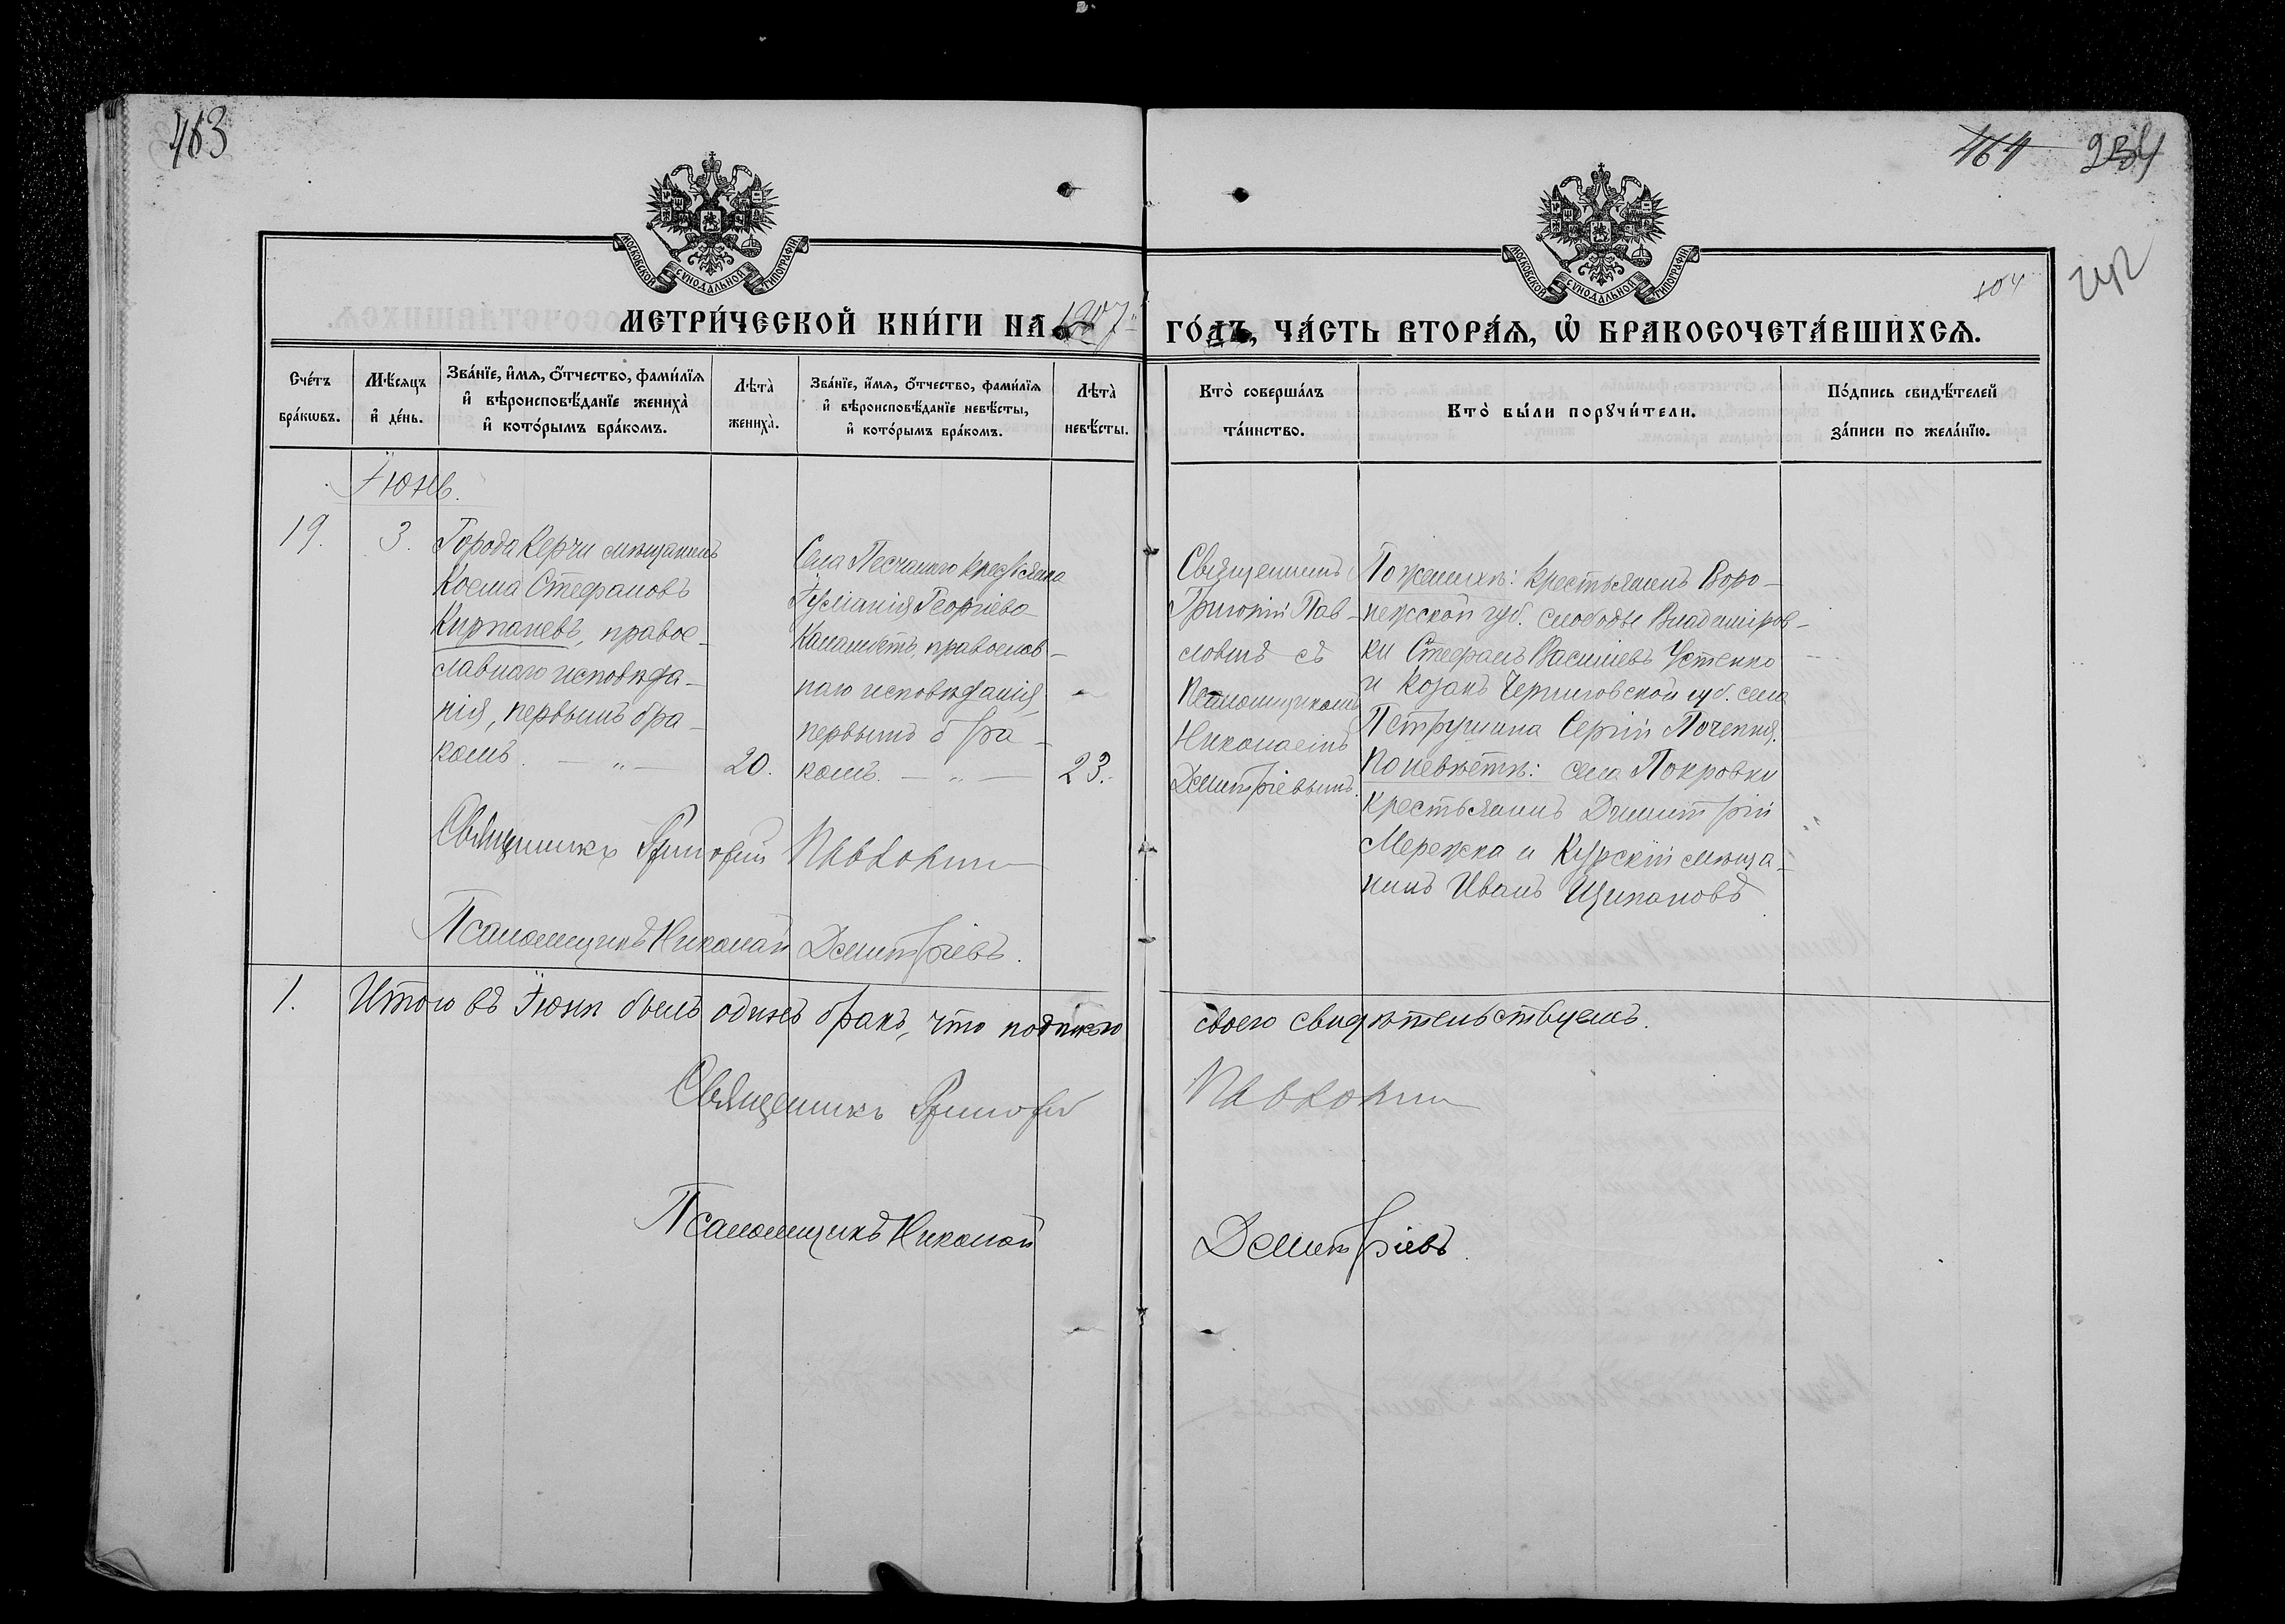 463
464 234
242
104
МОСКОВСКОЙ СѴНОДАЛЬНОЙ ТИПОГРАФІИ
МОСКОВСКОЙ СѴНОДАЛЬНОЙ ТИПОГРАФІИ
МЕТРИ́ЧЕСКОЙ КНИ́ГИ НА 1907
ГО́ДЪ, ЧА́СТЬ ВТОРА́Я, Ѡ БРАКОСОЧЕТА́ВШИХСЯ.
Сче́тъ бра́кѡвъ.
Мѣ́сяцъ и де́нь.
Зва́нїе, и́мя, о́тчество, фами́лїя и҆ вѣроисповѣ́данїе жениха̀ и҆ кото́рымъ бра́комъ.
Лѣта̀ жениха̀.
Зва́нїе, и́мя, о́тчество, фами́лїя и҆ вѣроисповѣ́данїе невѣ́сты, и҆ кото́рымъ бра́комъ.
Лѣта̀ невѣ́сты.
Кто̀ соверша́лъ та́инство.
Кто̀ бы́ли порꙋчи́тели.
По́дпись свидѣ́телей за́писи по жела́нїю.
Іюнь.
19.
3.
Города Керчи мѣщанинъ
Косма Стефановъ
Кирпаневъ, правос-
лавнаго исповѣда-
нія, первымъ бра-
комъ. — „ —
20.
Села Песчанаго крестьянка
Георгіева
православ-
наго исповѣданія,
первымъ бра-
комъ. — „ —
23.
Священникъ
Григорій Пав-
ловичъ съ
Псаломщикомъ
Николаемъ
Димитріевымъ.
По женихѣ: крестьянинъ Воро-
нежской губ. слободы Владиміров-
ки Стефанъ Васильевъ Устенко
и козакъ Черниговской губ. села
Петрушина Сергій Почепня.
По невѣстѣ: села Покровки
крестьянинъ Димитрій
Мережка и Курскій мѣща-
нинъ Иванъ Щипановъ
Священникъ Григорій
Псаломщикъ Николай Димитріевъ.
1.
Итого въ Іюнѣ былъ одинъ бракъ, что подписью
своего свидѣтельствуемъ.
Священникъ Григорій
Псаломщикъ Николай
Димитріевъ.